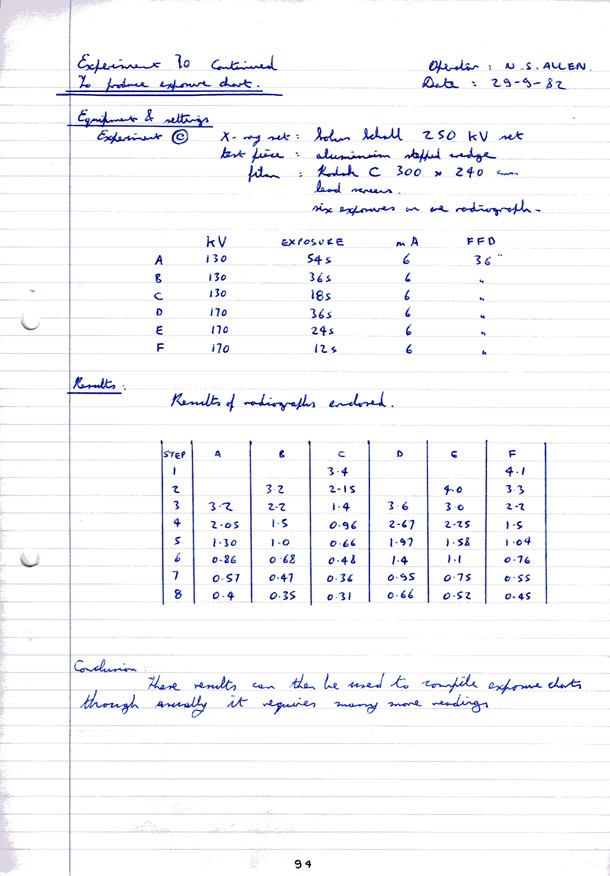 Experiment 30 Continued
Operator : N.S. ALLEN.
To produce exposure chart.
Date : 29-9-82
Equipment & settings
Experiment Ⓒ X-ray set : Solus Schall 250 kV set
test piece : aluminium stepped wedge
film : Kodak C 300 x 240 cm
lead screens.
six exposures on one radiograph.
kV EXPOSURE mA FFD
A 130 54s 6 36"
B 130 36s 6 "
C 130 18s 6 "
D 170 36s 6 "
E 170 24s 6 "
F 170 12s 6 "
Results :
Results of radiographs enclosed.
STEP A B C D E F
1 3.4 4.1
2 3.2 2.15 4.0 3.3
3 3.2 2.2 1.4 3.6 3.0 2.2
4 2.05 1.5 0.96 2.67 2.25 1.5
5 1.30 1.0 0.66 1.97 1.58 1.04
6 0.86 0.68 0.48 1.4 1.1 0.76
7 0.57 0.47 0.36 0.95 0.75 0.55
8 0.4 0.35 0.31 0.66 0.52 0.45
Conclusion.
These results can then be used to compile exposure charts
though usually it requires many more readings
94